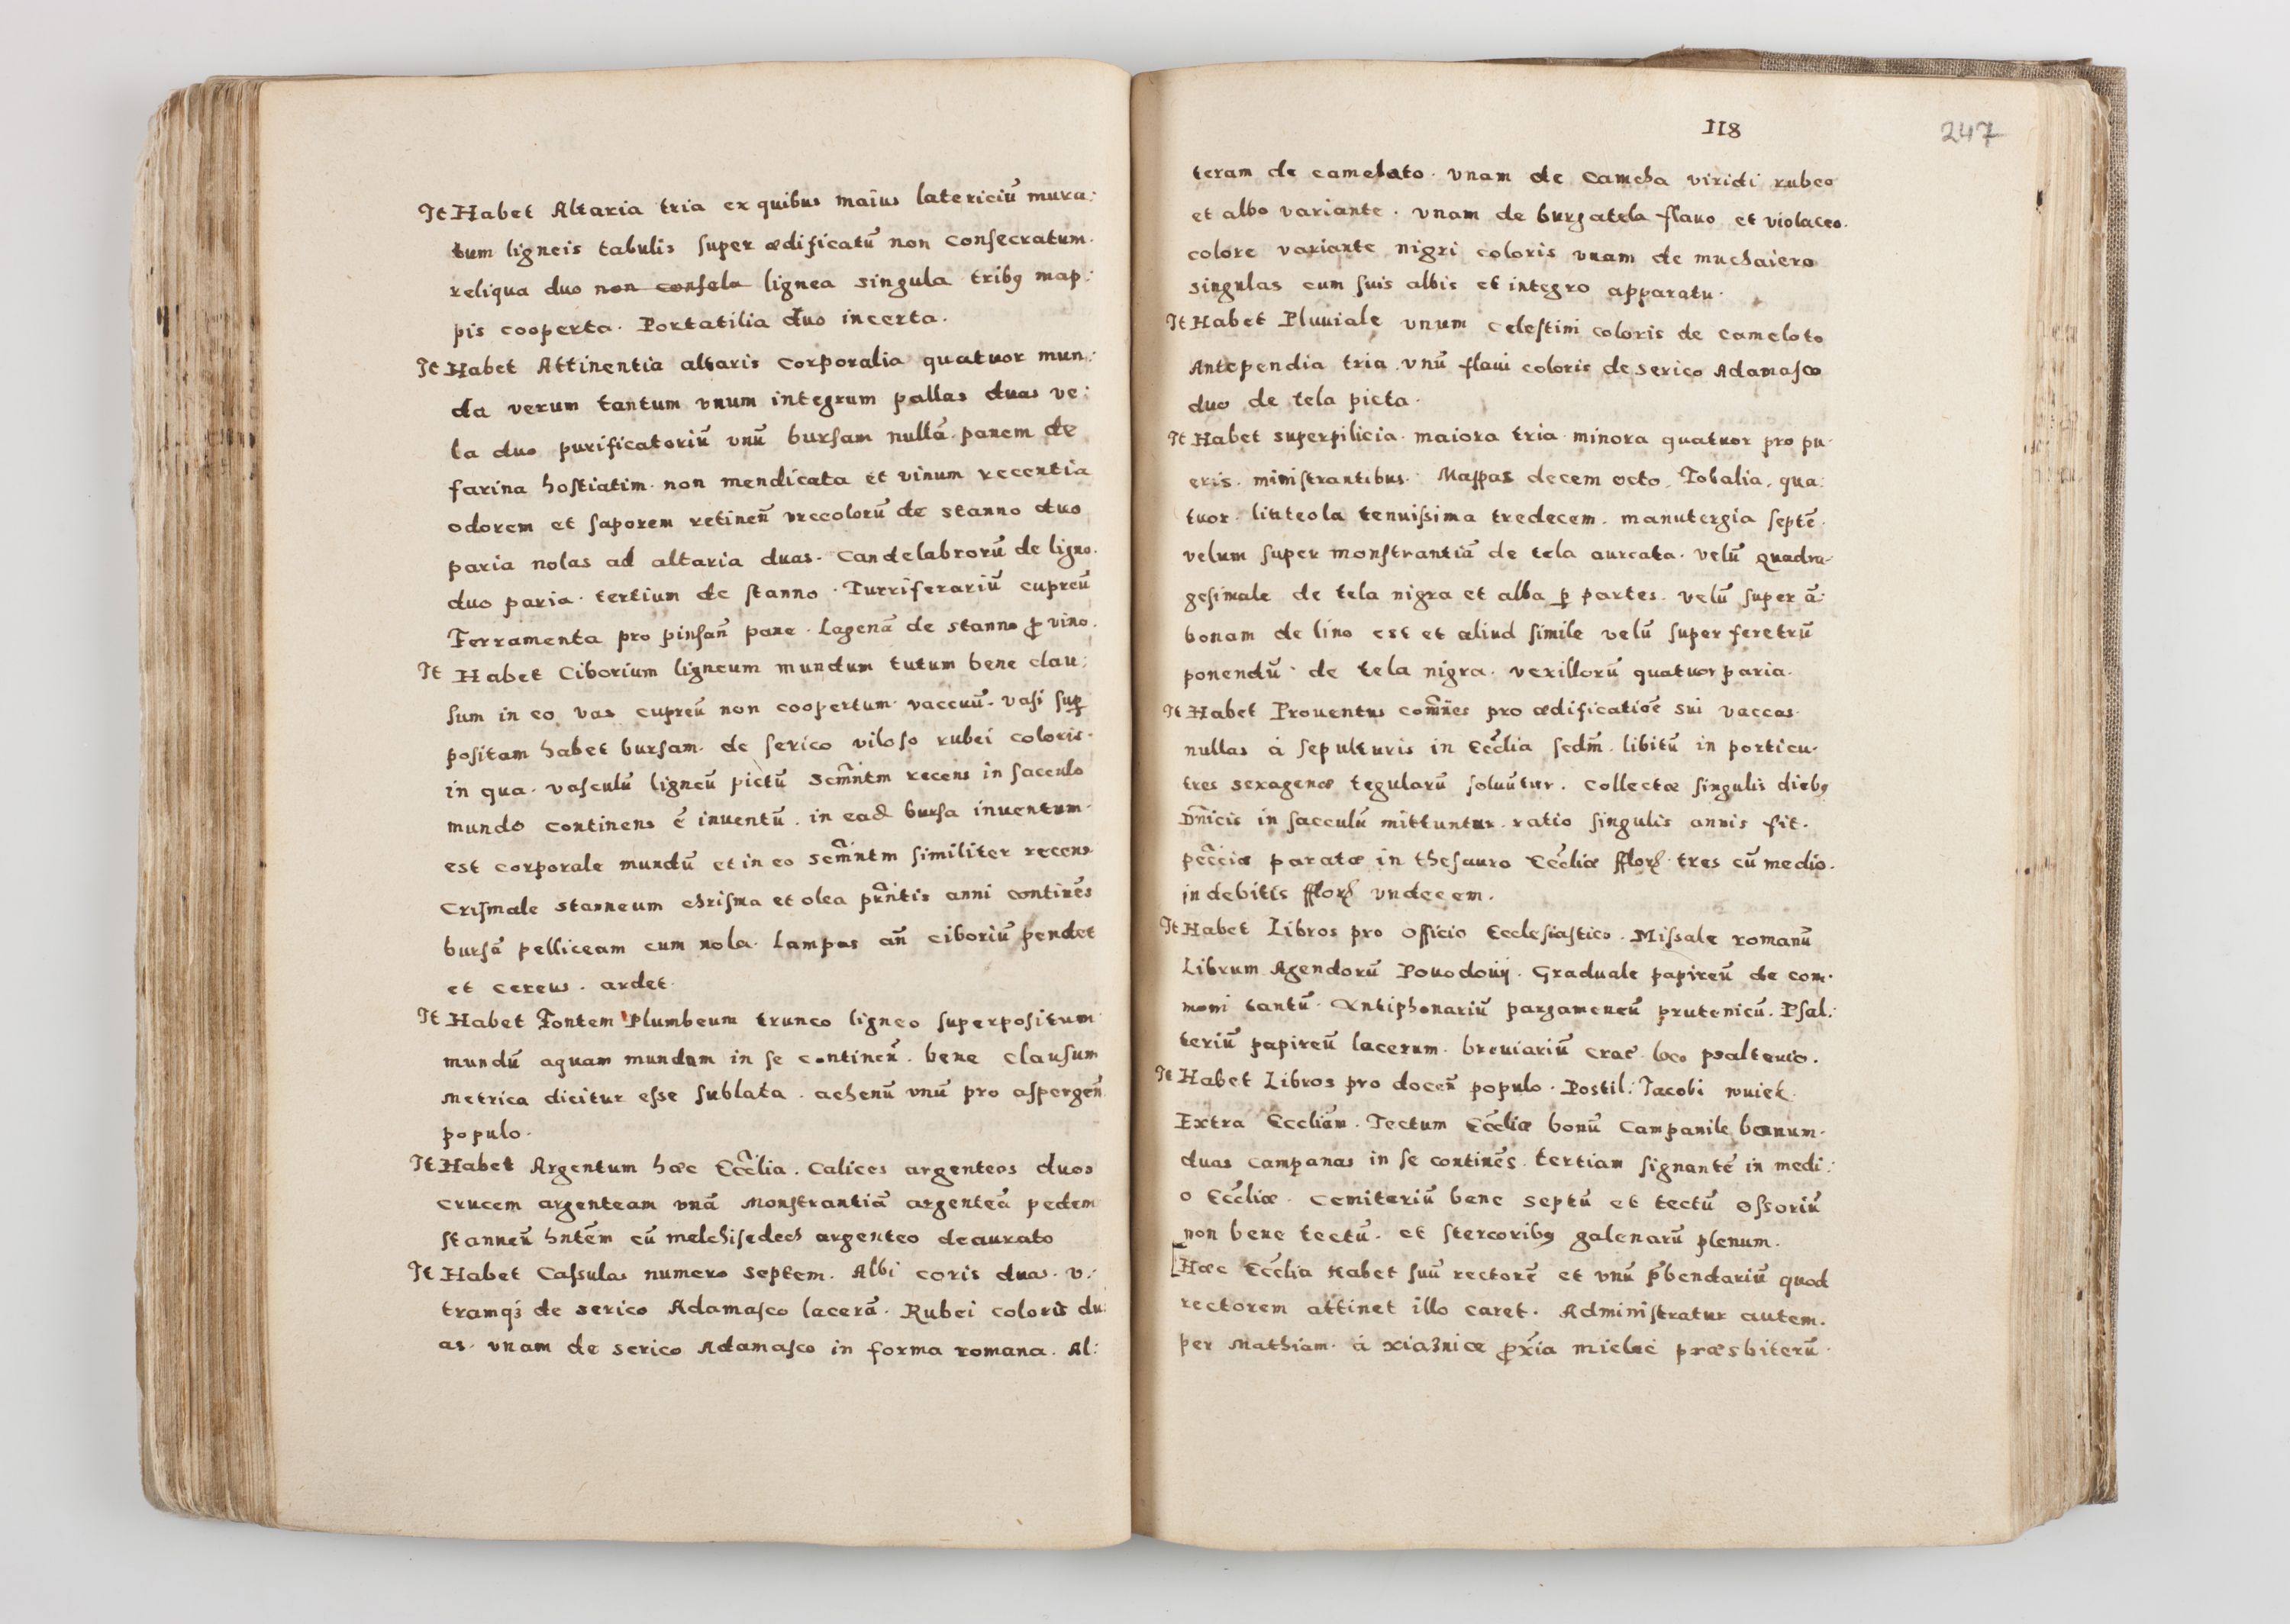 It Habet Altaria tria ex quibus maius latericiū mura:
tum ligneis tabulis ſuper ædificatū non Conſecratum.
reliqua duo non conſela lignea singula tribꝯ map:
pis cooperta. Portatilia duo incerta.
It Habet Attinentia altaris Corporalia quatuor mun:
da verum tantum vnum integrum pallas duas ve:
la duo purificatoriū vnū burſam nullā panem de
farina hoſtiatim non mendicata et vinum recentia
odorem et ſaporem retineñ vrceolorū de stanno duo
paria nolas ad altaria duas. Candelabrorū de ligno.
duo paria. tertium de ſtanno. Turriferariū cupreū
Ferramenta pro pinſañ pane. Lagenā de stanno ꝓ vino.
It Habet Ciborium ligneum mundum tutum bene clau:
ſum in eo vas cupreū non coopertum. vaccuū. vaſi ſuꝑ
poſitam habet burſam. de ſerico viloſo rubei coloris.
in qua. vaſculū ligneū pictū Scm̃ntm recens in ſacculo
mundo continens ē inuentū. in ead burſa inuentum.
est corporale mundū et in eo Scm̃ntm ſimiliter recens
Criſmale stanneum chriſma et olea pn̄tis anni continēs
burſā pelliceam cum nola. Lampas añ ciboriū pendet
et cereus. ardet.
It Habet Fontem Plumbeum trunco ligneo ſuperpoſitum
mundū aquam mundam in ſe contineñ. bene clauſum
Metrica dicitur eſse ſublata. ahenū vnū pro aſpergeñ
populo.
It Habet Argentum hæc Eccl̃ia. Calices argenteos duos
Crucem argenteam vnā Monſtrantiā argenteā pedem
ſtanneū hn̄tēm cū melchiſedech argenteo deaurato
It Habet Caſsulas numero septem. Albi coris duas. v:
tramqꝫ de serico Adamaſco lacerā. Rubei coloris du:
as. vnam de serico Adamaſco in forma romana. Al:
118
247
teram de camelato. vnam de Camcha viridi rubeo
et albo variante. vnam de burgatela flauo et violaceo.
colore variante nigri coloris vnam de muchaiero
singulas cum ſuis albis et integro apparatu.
It Habet Pluuiale vnum Celeſtini coloris de Cameloto
Antependia tria vnū flaui coloris de serico Adamaſco
duo de tela picta.
It Habet superpilicia. maiora tria minora quatuor pro pu
eris. miniſtrantibus. Mappas decem octo. Tobalia. qua:
tuor. linteola tenuiſsima tredecem. manutergia ſeptē.
velum ſuper monſtrantiā de tela aureata. velū quadra
geſimale de tela nigra et alba ꝑ partes. velū ſuper ā:
bonam de lino est et aliud ſimile velū ſuper feretrū
ponendū. de tela nigra. vexillorū quatuor paria.
It Habet Prouentus com̃nes pro ædificatiōe sui vaccas.
nullas á ſepulturis in Eccl̃ia ſedm̃. libitū in porticu.
tres sexagenæ tegularū ſoluūtur. Collectæ ſingulis diebꝯ
Dn̄icis in ſacculū mittuntur. ratio ſingulis annis fit.
pecciæ paratæ in theſauro Eccl̃iæ fflorꝝ tres cū medio.
in debitis fflorꝝ vndecem.
It Habet Libros pro officio Eccleſiaſtico. Miſsale romanū
Librum Agendorū Pouodouij. Graduale papireū de com.
muni tantū. Antiphonariū pargameneū prutenicū. Pſal:
teriū papireū lacerum. breuiariū crac̄. loco psalterio.
It Habet Libros pro doceñ populo. Postil: Jacobi wuiek.
Extra Eccliam. Tectum Eccl̃iæ bonū Campanile bonum.
duas campanas in ſe continēs. tertiam ſignantē in medi:
o Eccl̃iæ. Cemiteriū bene septū et tectū oſsoriū
non bene tectū. et ſtercoribꝯ galenarū plenum.
Hæc Eccl̃ia habet ſuū rectorē et vnū p̄bendariū quod
rectorem attinet illo caret. Adminiſtratur autem.
per Mathiam á xiaznice ꝓxīa præsbiterū.